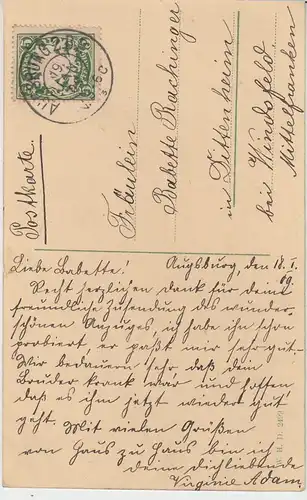 Postkarte.
Fräulein
Babette Rachinger
in Dittenheim
bei Windsfeld.
Mittelfranken
Liebe Babette! Augsburg den 18. I.
09.
Recht herzlichen dank für deine
freundliche Zusendung des wunder-
schönen Anzuges, ich habe ihn schon
probiert, er paßt mir sehr gut.-
Wir bedauern sehr daß dein
Bruder krank war und hoffen
daß es ihm jetzt wieder gut
geht. Mit vielen Grüßen
von Haus zu Haus bin ich
deine dichliebende
Virginie Adam.